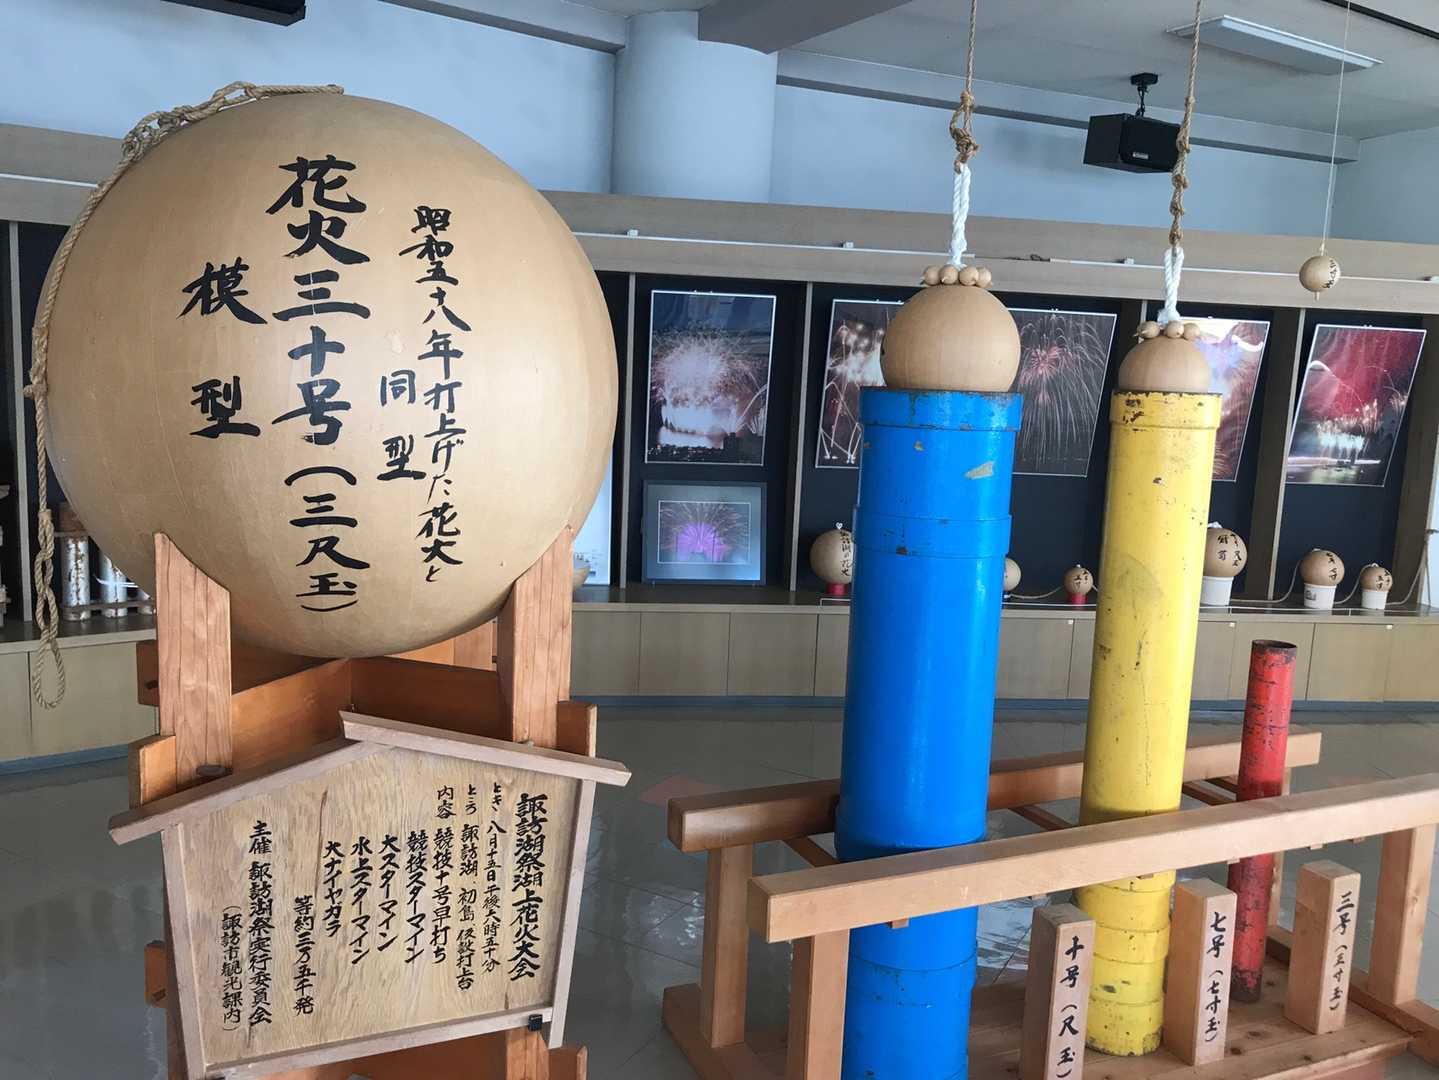 昭和五十八年打上げた花火と
同型
花火三十号(三尺玉)
模型
諏訪湖祭湖上花火大会
とき 八月十五日午後六時五十分
ところ 諏訪湖 初島 仮設打上台
内容 競技十号早打ち
競技スターマイン
大スターマイン
水上スターマイン
大ナイヤガラ
等約三万五千発
主催 諏訪湖祭実行委員会
(諏訪市観光課内)
十号(尺玉)
七号(七寸玉)
三号(三寸玉)